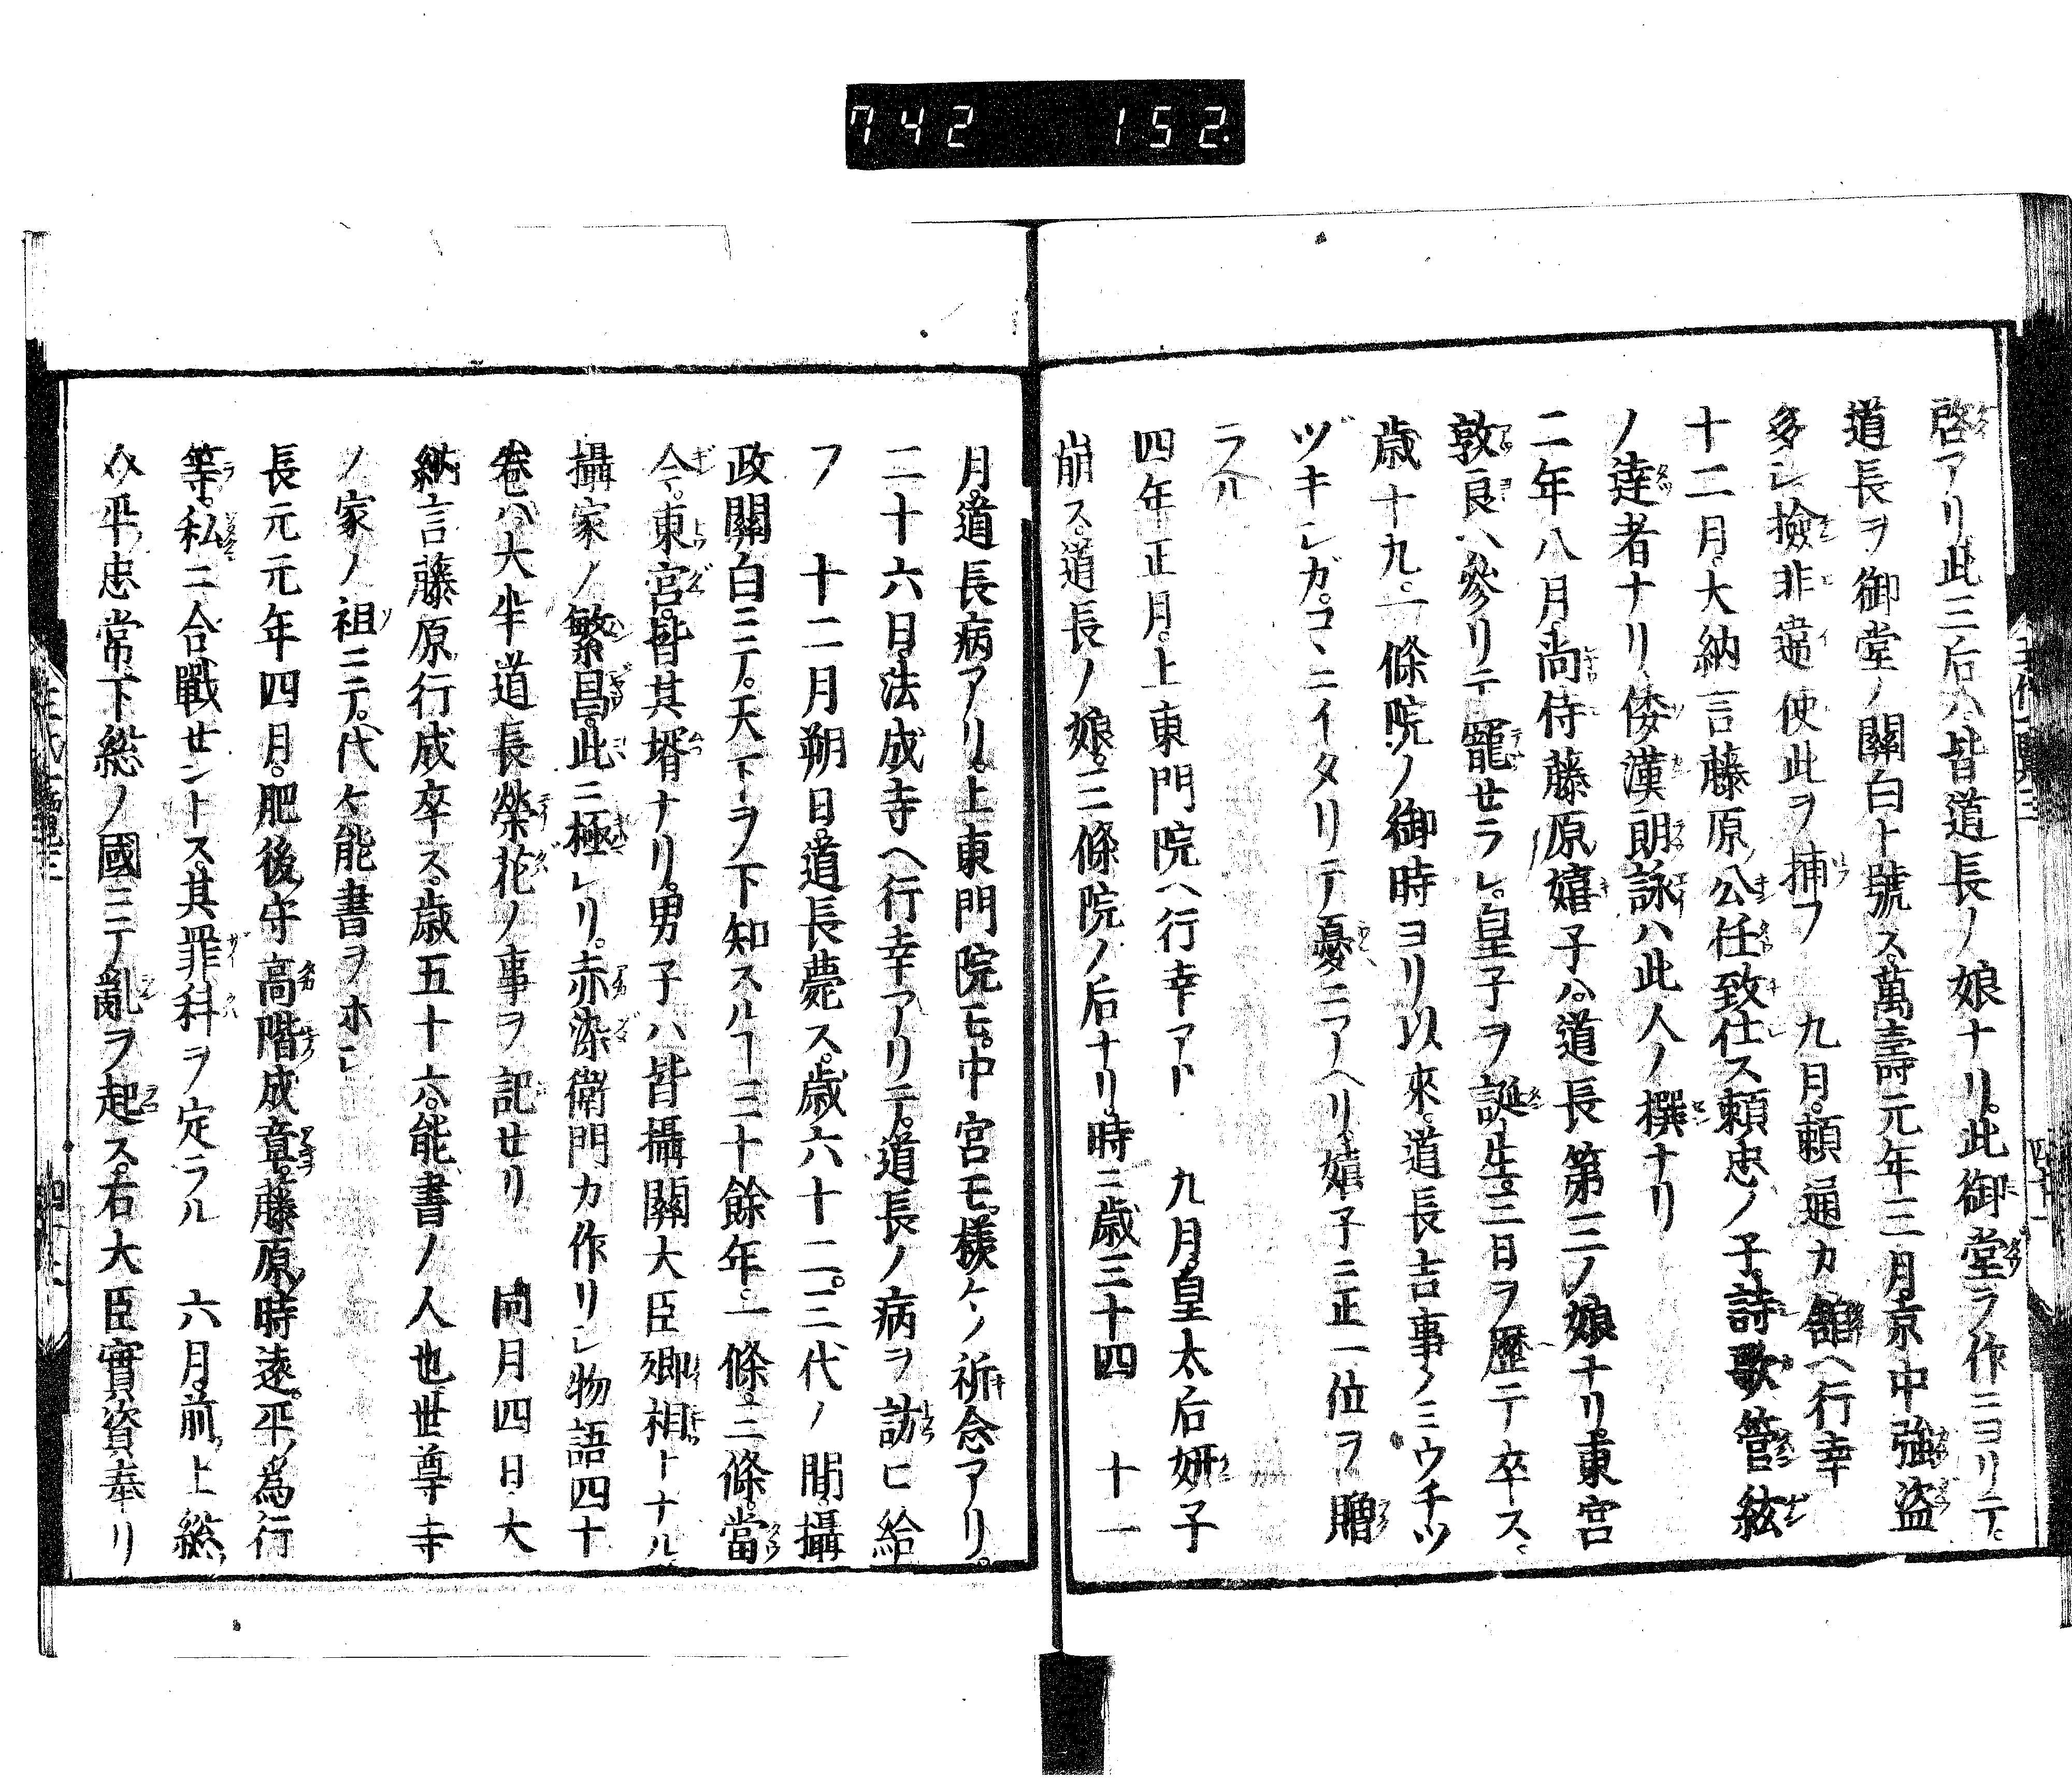 742 152.
啓アリ此三后ハ皆道長ノ娘ナリ。此御堂ヲ作ニヨリテ。
道長ヲ御堂ノ關白ト號ス。萬壽元年三月。京中強盜
多シ撿非違使此ヲ捕フ　九月。賴通カ舘ヘ行幸
十二月。大納言藤原公任致仕ス賴忠ノ子。詩歌管絃
ノ達者ナリ倭漢朗詠ハ此人ノ撰ナリ
二年八月尚侍藤原嬉子ハ。道長第三ノ娘ナリ。東宮
敦良ヘ參リテ寵セラレ。皇子ヲ誕生。三日ヲ歷テ卒ス。
歲十九。一條院ノ御時ヨリ以來。道長吉事ノミウチツ
ヅキシガ。コヽニイタリテ憂ニアヘリ。嬉子ニ正一位ヲ贈
ラル
四年正月。上東門院ヘ行幸アリ　九月。皇太后妍子
崩ス。道長ノ娘。三條院ノ后ナリ。時ニ歲三十四　十一
月。道長病アリ。上東門院モ。中宮モ。樣々ノ祈念アリ。
二十六日。法成寺ヘ行幸アリテ。道長ノ病ヲ訪ヒ給
フ　十二月朔日。道長薨ス。歲六十二。三代ノ間。攝
政關白ニテ。天下ヲ下知スルヿ三十餘年。一條。三條。當
今。東宮。皆其壻ナリ。男子ハ皆攝關大臣卿相トナル。
攝家ノ繁昌。此ニ極レリ。赤染衛門カ作リシ物語四十
卷ハ。大半道長榮花ノ事ヲ記セリ　同月四日。大
納言藤原行成卒ス。歲五十六。能書ノ人也世尊寺
ノ家ノ祖ニテ。代々能書ヲホシ
長元元年四月。肥後守高階成章。藤原時遠。平爲行
等。私ニ合戰セントス。其罪科ヲ定ラル　六月。前上總
介平忠常。下総ノ國ニテ亂ヲ起ス。右大臣實資奉リ